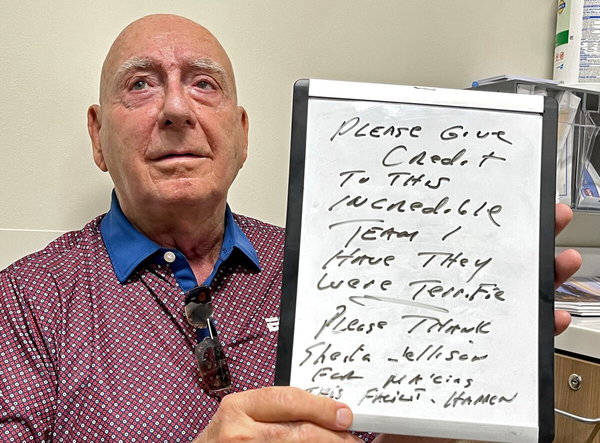 PLEASE GIVE
CREDIT
TO THIS
INCREDIBLE
TEAM I
HAVE THEY
WERE TERRIFIC
PLEASE THANK
Sheila
FOR MAKING
THIS